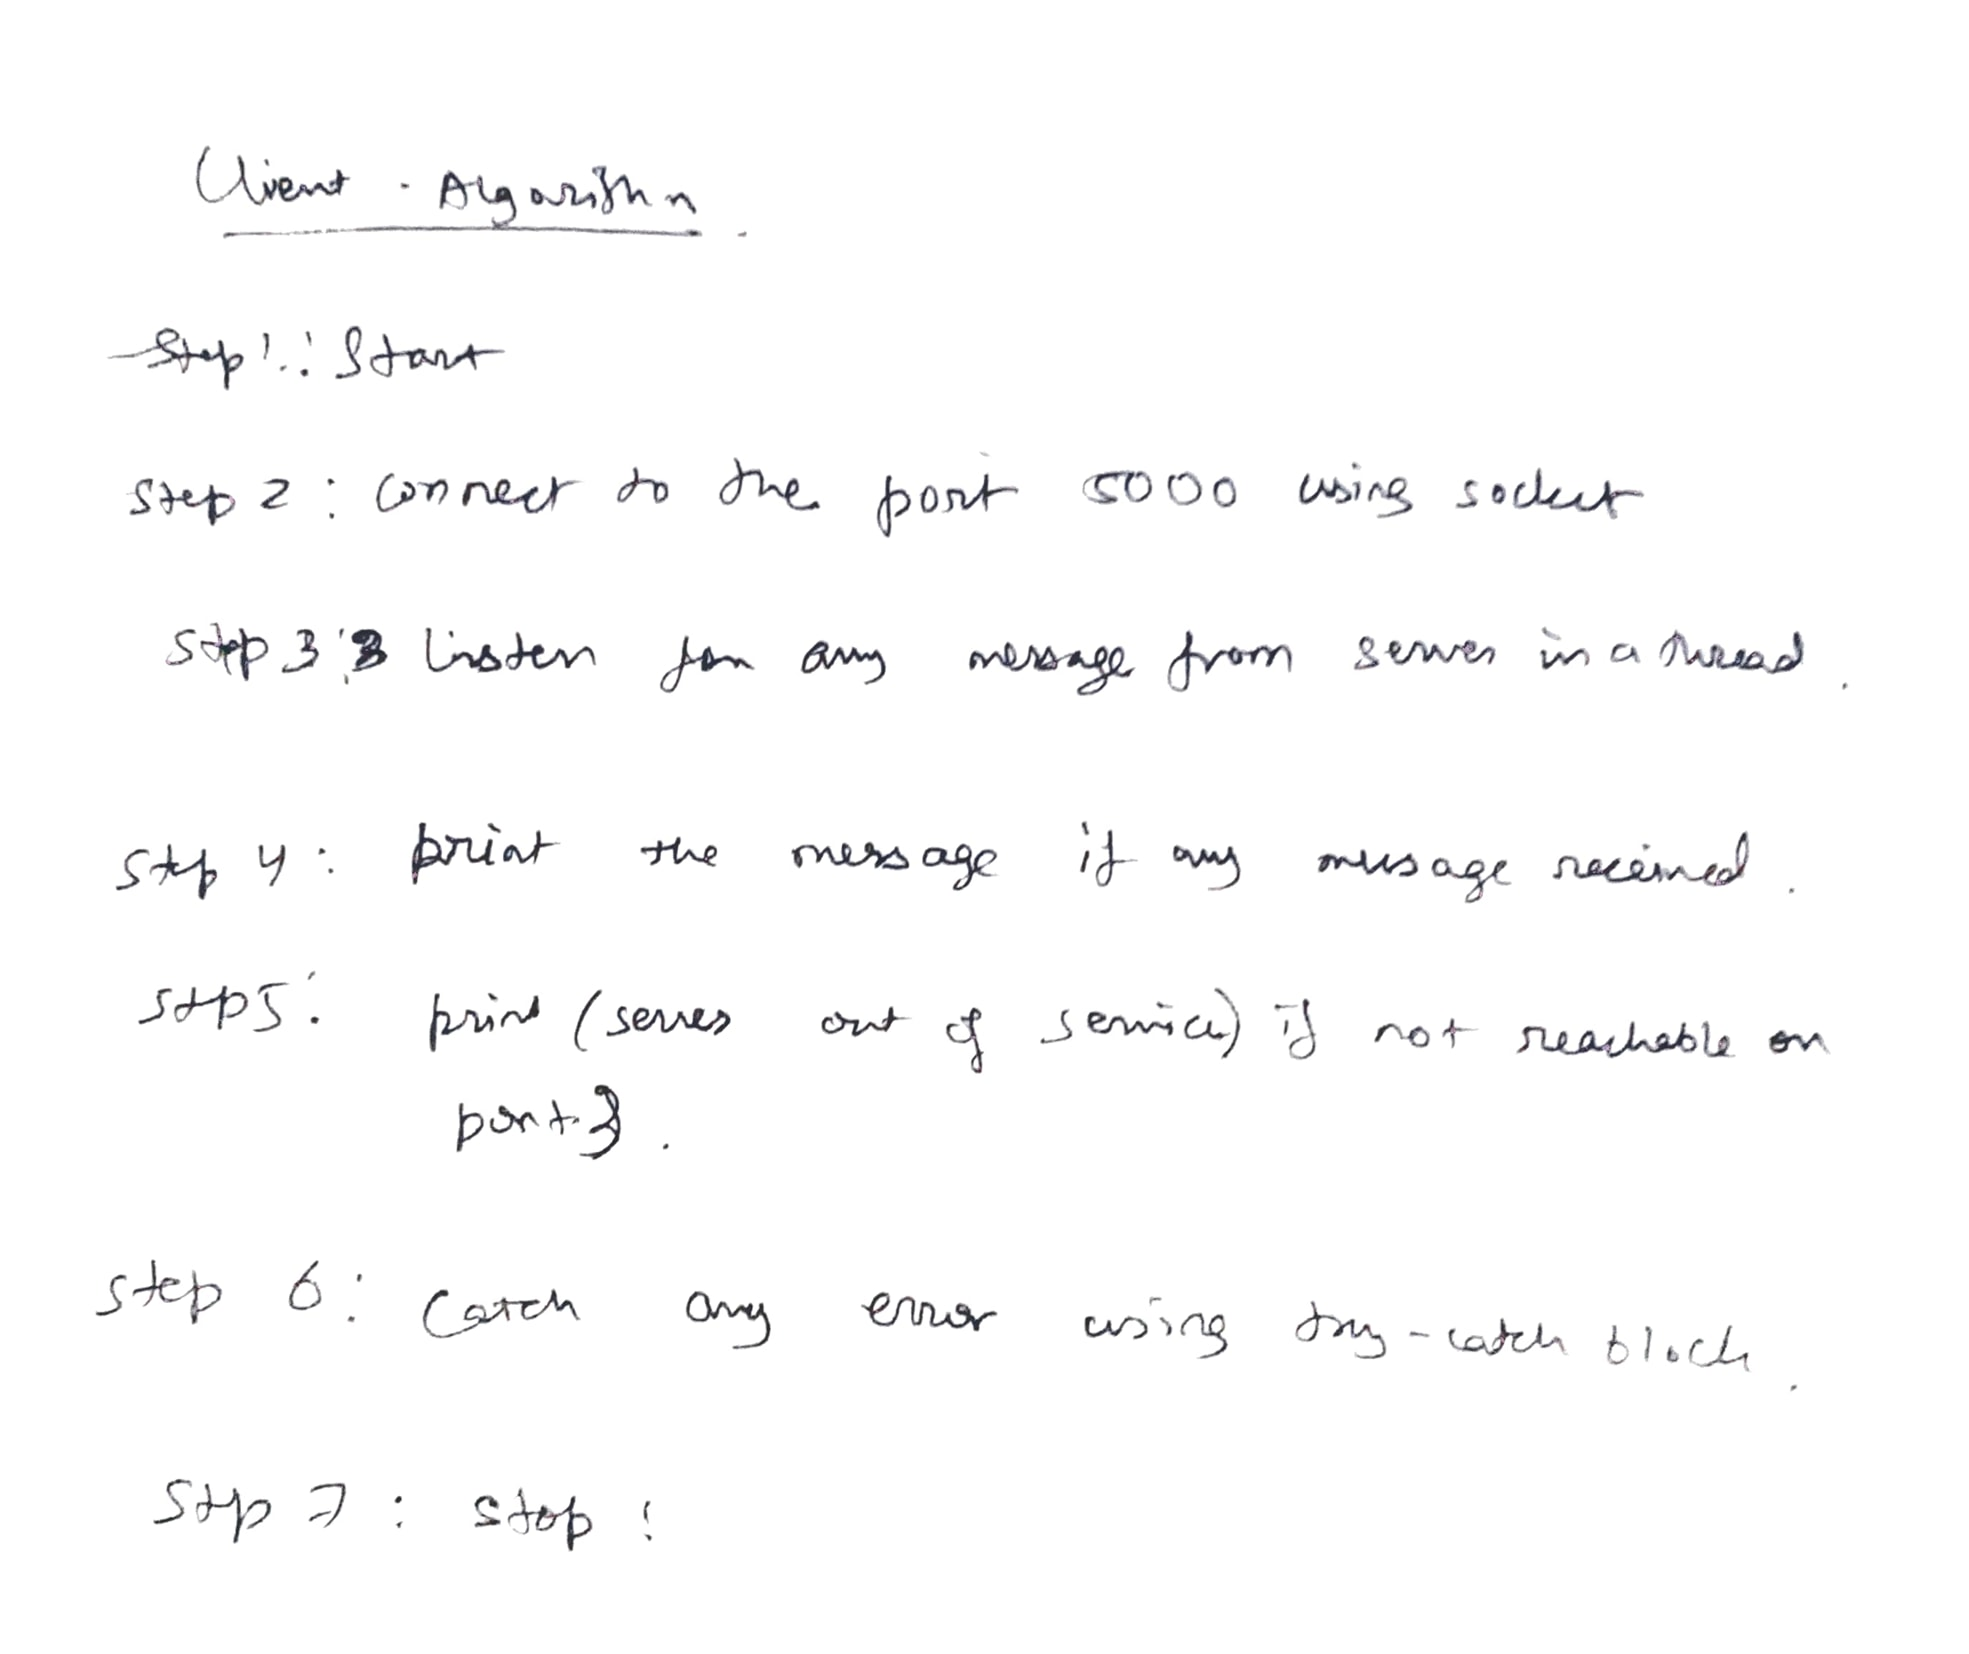 Client - Algorithm
Step 1 : Start
Step 2 : Connect to the port 5000 using socket
Step 3 : Listen for any message from server in a thread.
Step 4 : print the message if any message received.
Step 5 : print (server out of service) if not reachable on
port }.
Step 6 : Catch any error using try-catch block.
Step 7 : stop !